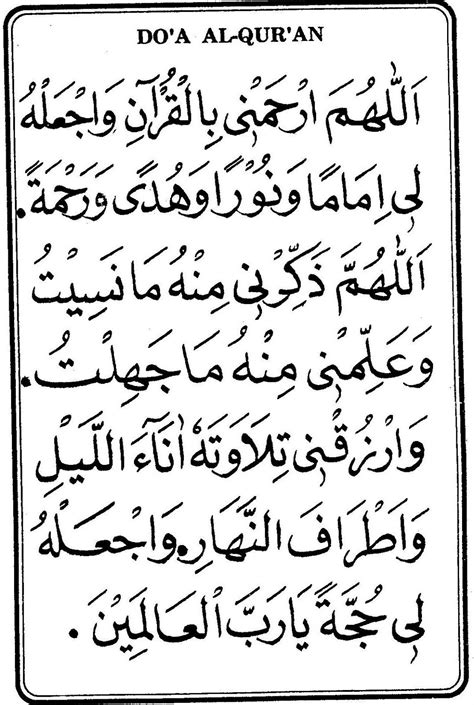 DO'A AL-QUR'AN
اَللّٰهُمَ ارْحَمْنِي بِالْقُرْآنِ وَاجْعَلْهُ
لِي اِمَامًا وَنُوْرًا وَهُدًى وَرَحْمَةً.
اَللّٰهُمَّ ذَكِّرْنِي مِنْهُ مَا نَسِيْتُ
وَعَلِّمْنِي مِنْهُ مَا جَهِلْتُ.
وَارْزُقْنِي تِلَاوَتَهٗ اٰنَاۤءَ اللَّيْلِ
وَاَطْرَافَ النَّهَارِ. وَاجْعَلْهُ
لِي حُجَّةً يَارَبَّ الْعَالَمِيْنَ.